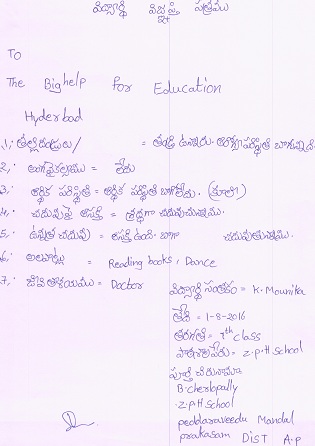 విద్యార్థి విజ్ఞప్తి పత్రము
To
The Bighelp for Education
Hyderbad
1. తల్లిదండ్రులు / = తండ్రి ఉన్నారు. ఆరోగ్య పరిస్థితి బాగున్నది
2. అంగవైకల్యము = లేదు
3. ఆర్థిక పరిస్థితి = ఆర్థిక పరిస్థితి బాగోలేదు. (కూలీ)
4. చదువుపై ఆసక్తి = శ్రద్ధగా చదువుచున్నాము.
5. ఉన్నత చదువు = ఆసక్తి ఉంది. బాగా చదువుతున్నాము.
6. అలవాట్లు = Reading books, Dance
7. జీవితాశయము = Doctor
విద్యార్థి సంతకం = K. Mounika
తేది = 1-8-2016
తరగతి = 7th class
పాఠశాల పేరు = Z.P.H School
పూర్తి చిరునామా
B. cherlopally
Z.P.H School
peddaraveedu Mandal
prakasam DIST A.P